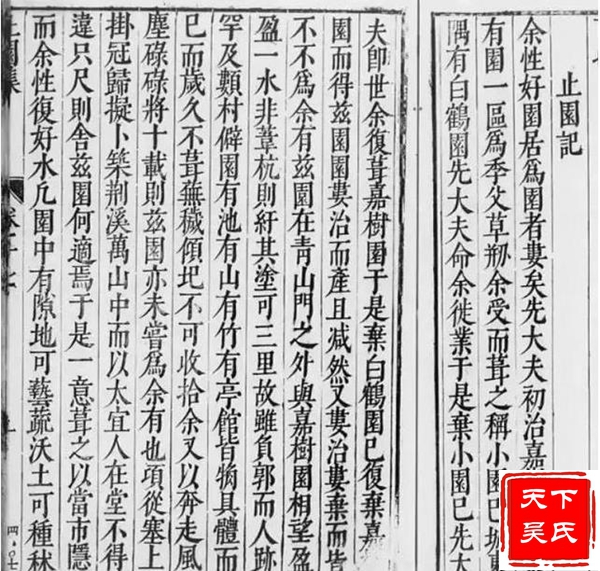 止園記
余性好園居爲園者婁矣先大夫初治嘉
有園一區爲季父草剏余受而葺之稱小園已城
隅有白鶴園先大夫命余徙業于是棄小園已先
夫卽世余復葺嘉樹園于是棄白鶴園已復棄嘉
園而得茲園園婁治而產且減然又婁治婁棄而皆
不不爲余有茲園在青山門之外與嘉樹園相望盈
盈一水非葦杭則紆其塗可三里故雖負郭而人跡
罕及類村僻園有池有山有竹有亭館皆具體而
已而歲久不葺蕪穢傾圯不可收拾余又以奔走風
塵碌碌將十載則茲園亦未嘗爲余有也項從塞上
掛冠歸擬卜築荆溪萬山中而以太宜人在堂不得
違只尺則舍茲園何適焉于是一意葺之以當市隱
而余性復好水凢園中有隙地可藝蔬沃土可種秫
園集
卷十七
天下
吳氏